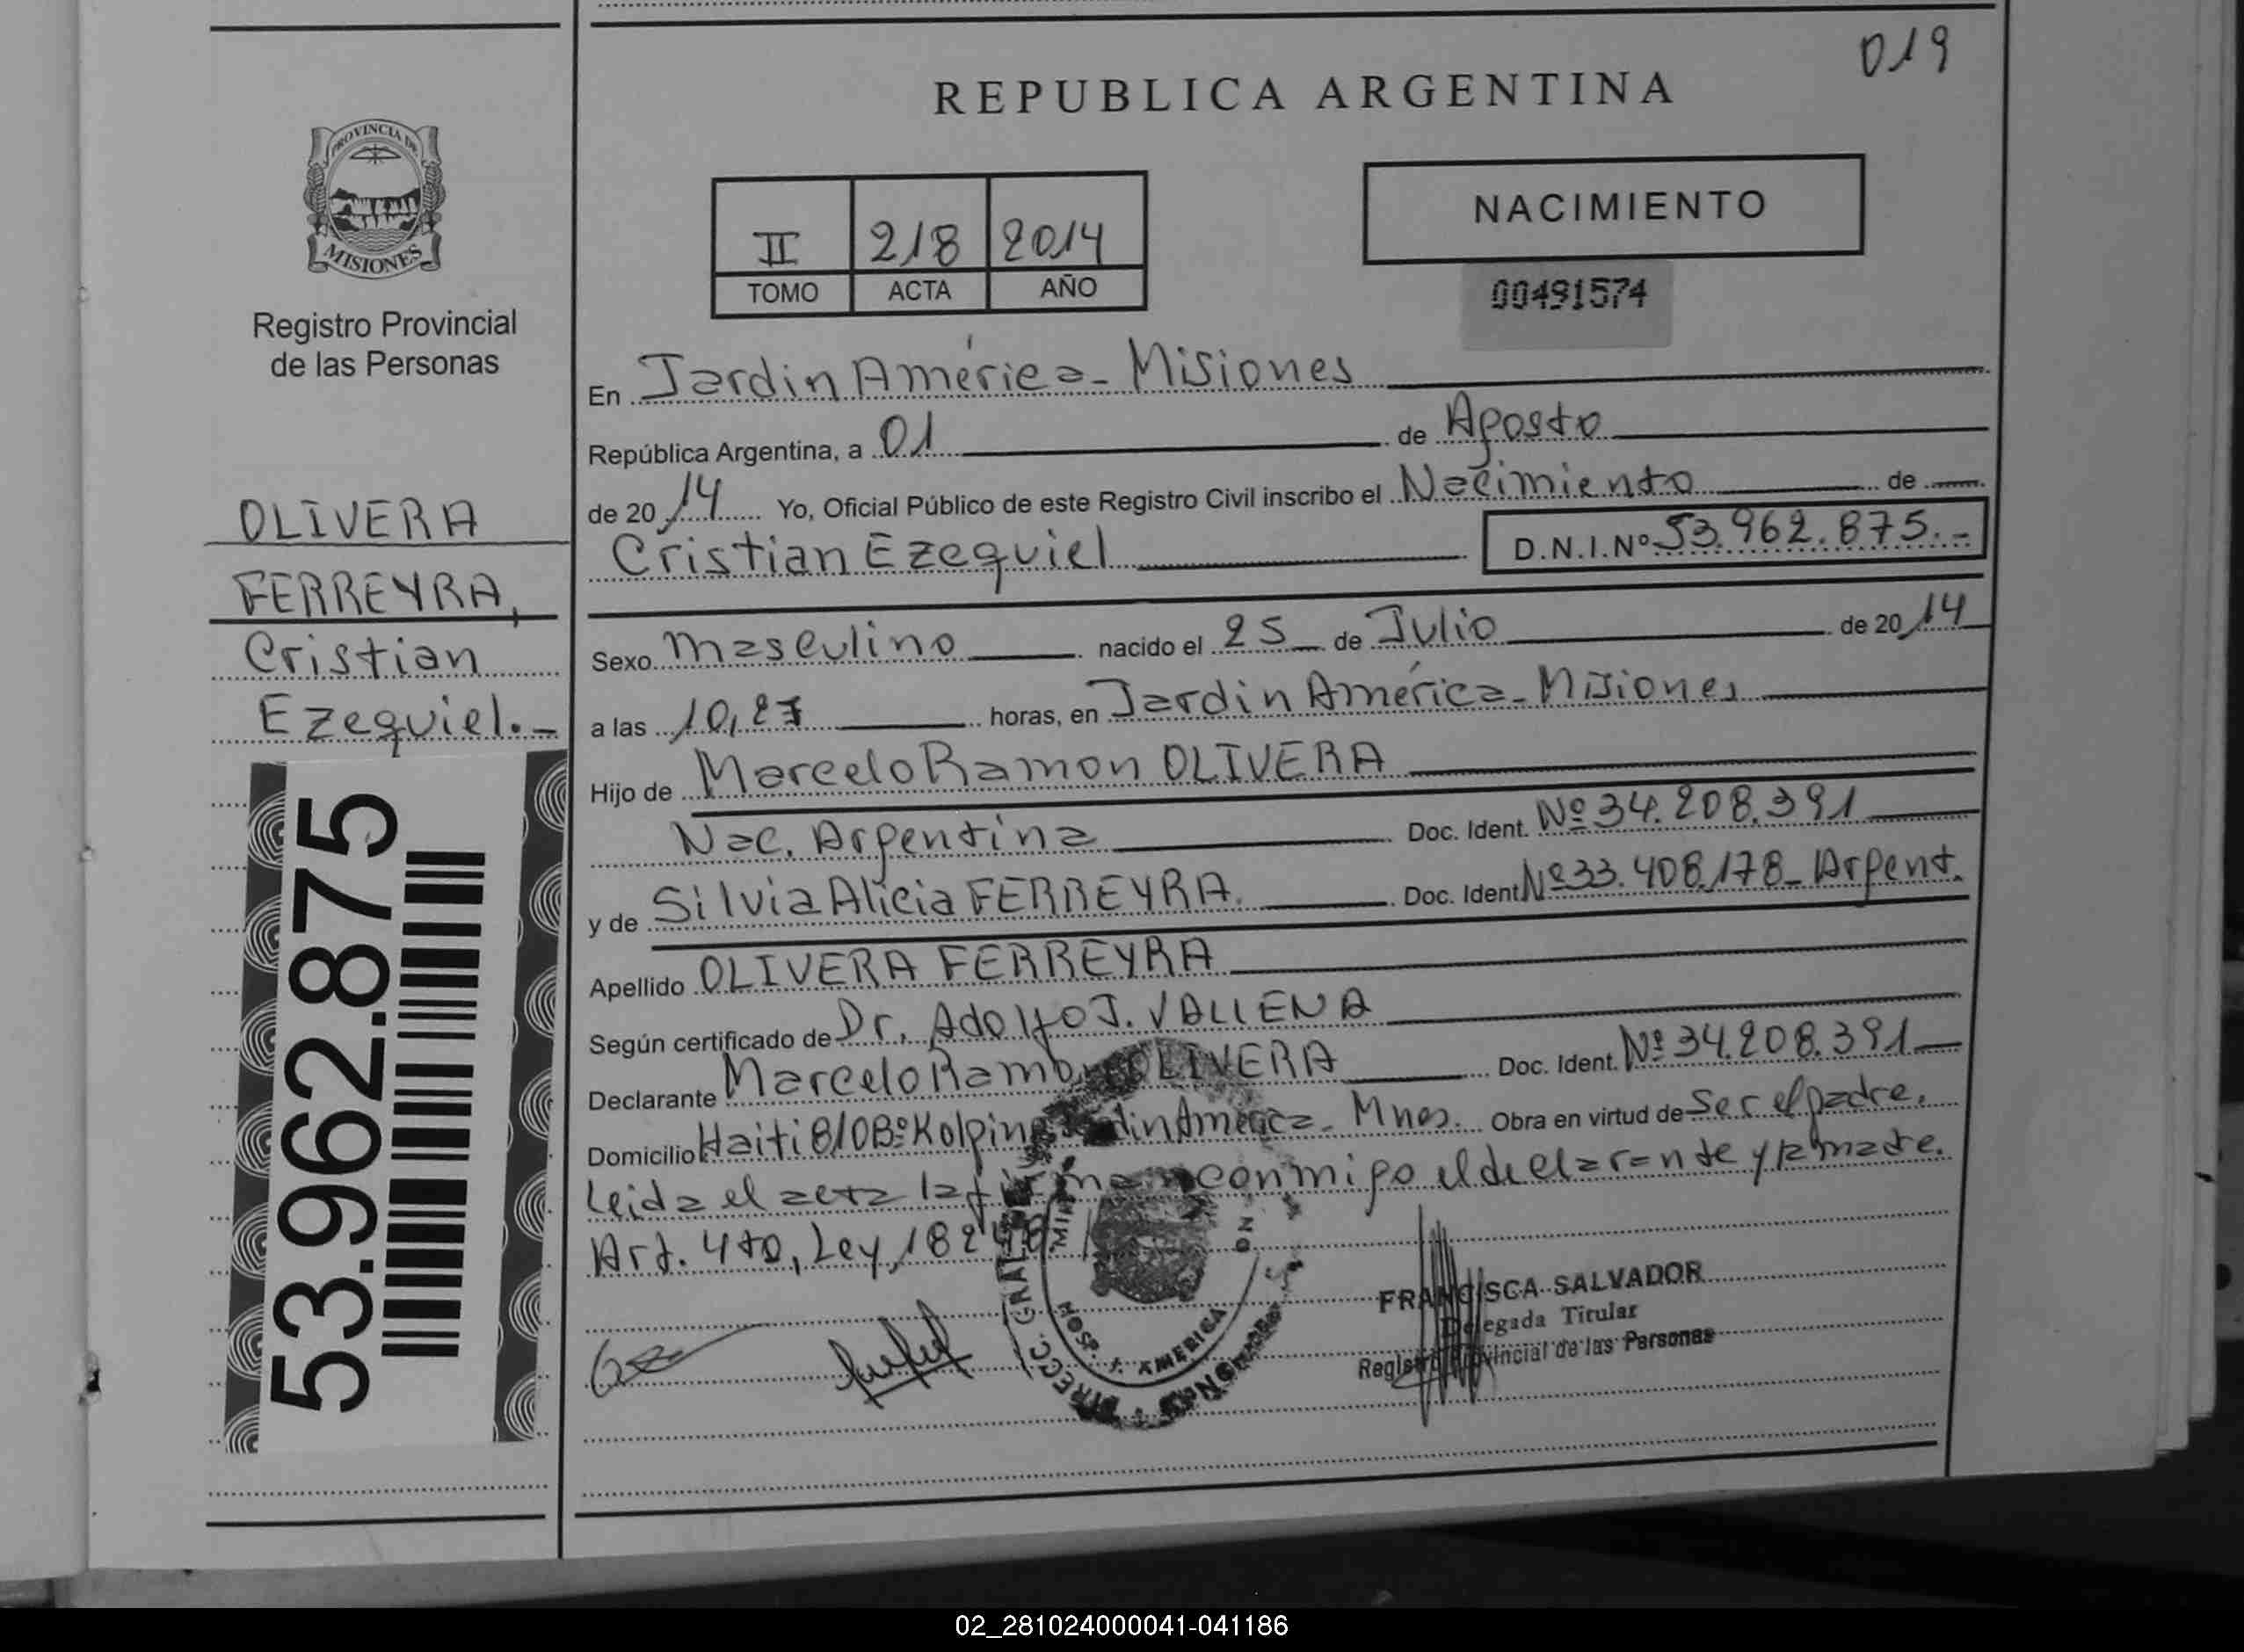 019
REPUBLICA ARGENTINA
PROVINCIA DE
MISIONES
Registro Provincial
de las Personas
II 218 2014
TOMO ACTA AÑO
NACIMIENTO
00491574
OLIVERA
FERREYRA,
Cristian
Ezequiel.-
53.962.875
En Jardin América - Misiones
República Argentina, a 01 de Agosto
de 2014 Yo, Oficial Público de este Registro Civil inscribo el Nacimiento de
Cristian Ezequiel D.N.I.Nº 53.962.875.-
Sexo Masculino nacido el 25 de Julio de 2014
a las 10,27 horas, en Jardin América - Misiones
Hijo de Marcelo Ramon OLIVERA
Nac. Argentina Doc. Ident. Nº 34.208.391
y de Silvia Alicia FERREYRA. Doc. Ident. Nº 33.408.178 - Argent.
Apellido OLIVERA FERREYRA
Según certificado de Dr. Adolfo J. VALLENA
Declarante Marcelo Ramon OLIVERA Doc. Ident. Nº 34.208.391
Domicilio Haiti 810 Bº Kolping Jardin América - Mnes. Obra en virtud de Ser el padre.
Leida el acta la firman conmigo el declarante y la madre.
Art. 4to, Ley 18248
DIRECC. GRAL.
HOSP. J. AMERICA
FRANCISCA SALVADOR
Delegada Titular
Registro Provincial de las Personas
02_281024000041-041186